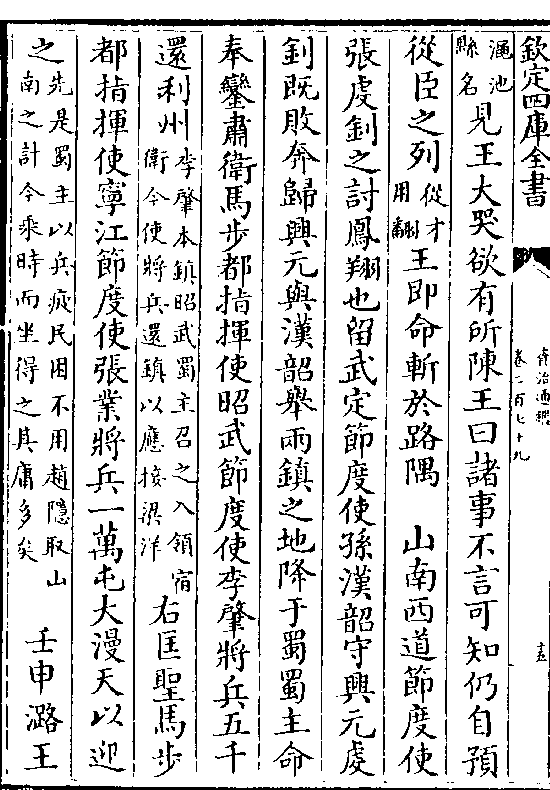 欽定四庫全書
資治通鑑
卷二百七十九
澠池
縣名
見王大哭欲有所陳王曰諸事不言可知仍自預
從臣之列
從才
用翻
王即命斬於路隅　山南西道節度使
張虔釗之討鳳翔也留武定節度使孫漢韶守興元虔
釗既敗奔歸興元與漢韶舉兩鎮之地降于蜀蜀主命
奉鑾肅衛馬步都指揮使昭武節度使李肇將兵五千
還利州
李肇本鎮昭武蜀主召之入領宿
衛今使將兵還鎮以應接梁洋
右匡聖馬步
都指揮使寧江節度使張業將兵一萬屯大漫天以迎
之
先是蜀主以兵疲民困不用趙隱取山
南之計今乘時而坐得之其庸多矣
壬申潞王